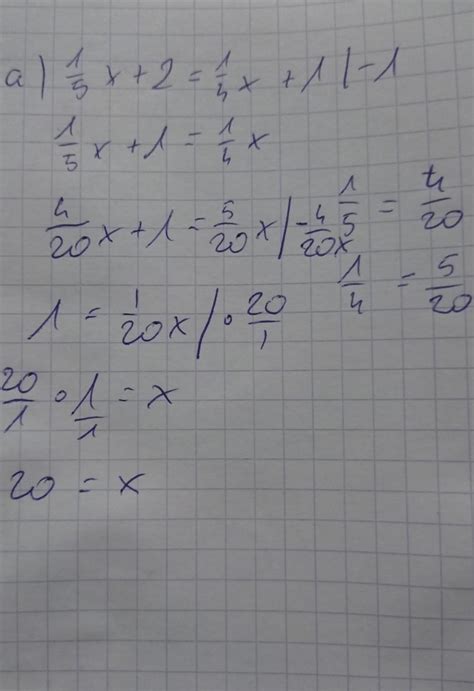 a) 1/5 x + 2 = 1/4 x + 1 | -1
1/5 x + 1 = 1/4 x
4/20 x + 1 = 5/20 x | - 4/20 x
1/5 = 4/20
1/4 = 5/20
1 = 1/20 x | · 20/1
20/1 · 1/1 = x
20 = x